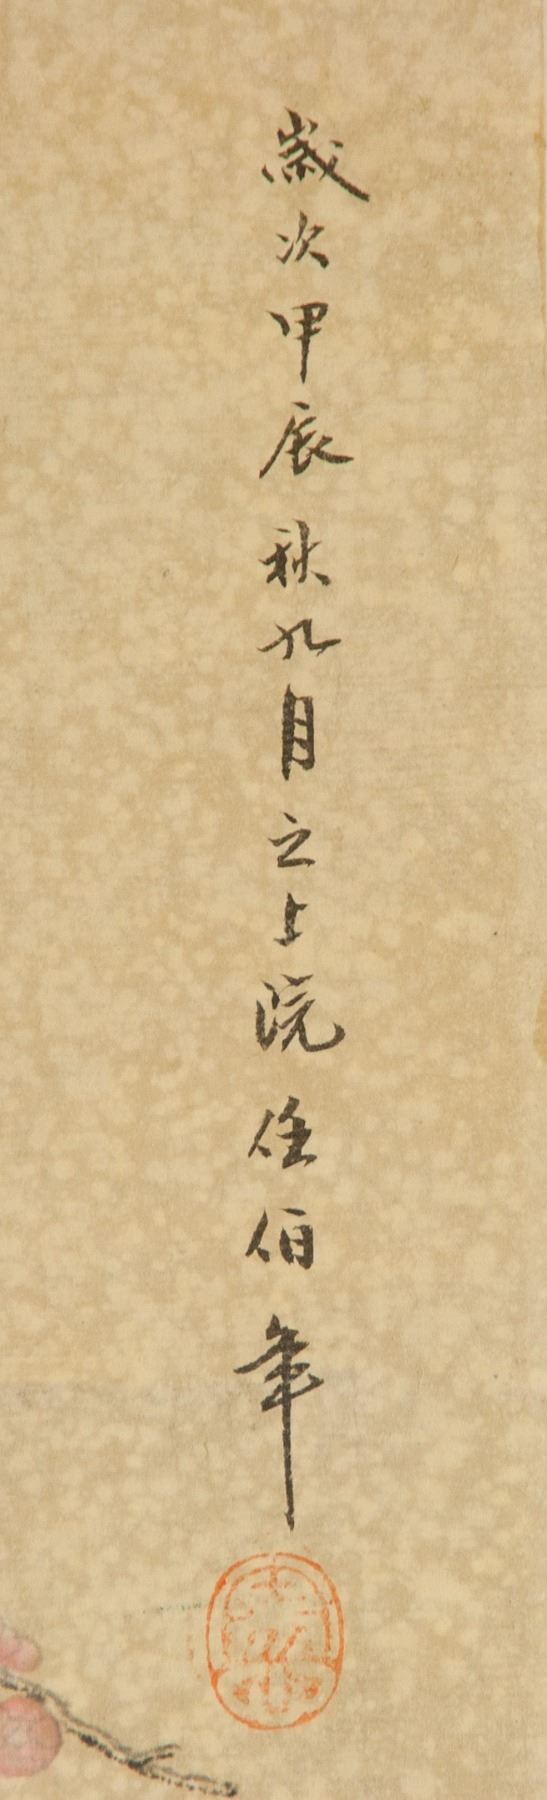 歲次甲辰秋九月之上院任伯年